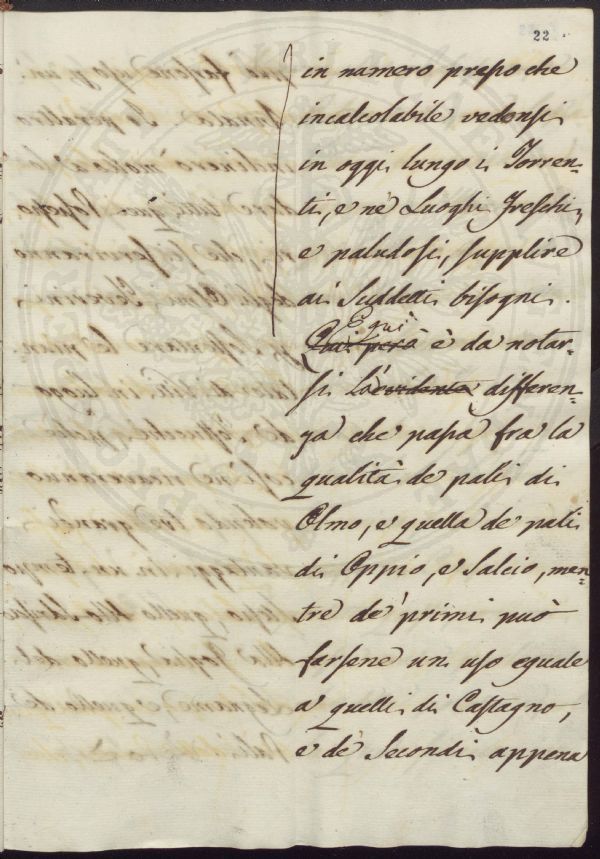 22
in numero presso che
incalcolabile vedonsi
in oggi lungo i Torren=
ti, e ne' Luoghi freschi,
e paludosi, supplire
ai suddetti bisogni.
E qui
Qui però è da notar=
si la evidente differen=
za che passa fra la
qualità de pali di
Olmo, e quella de pali
di Oppio, e Salcio, men=
tre de' primi può
farsene un uso eguale
a quelli di Castagno,
e de' secondi appena